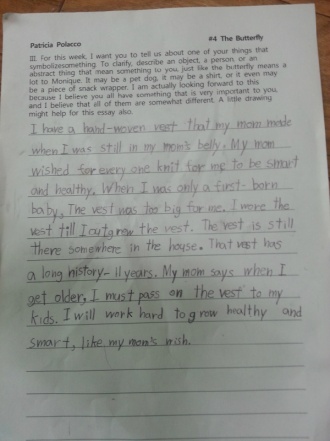 Patricia Polacco #4 The Butterfly
III. For this week, I want you to tell us about one of your things that
symbolizesomething. To clarify, describe an object, a person, or an
abstract thing that mean something to you, just like the butterfly means a
lot to Monique. It may be a pet dog, it may be a shirt, or it even may
be a piece of snack wrapper. I am actually looking forward to this
because I believe you all have something that is very important to you,
and I believe that all of them are somewhat different. A little drawing
might help for this essay also.
I have a hand-woven vest that my mom made
when I was still in my mom's belly. My mom
wished for every one knit for me to be smart
and healthy. When I was only a first-born
baby, The vest was too big for me. I wore the
vest till I outgrew the vest. The vest is still
there somewhere in the house. That vest has
a long history- 11 years. My mom says when I
get older, I must pass on the vest to my
kids. I will work hard to grow healthy and
smart, like my mom's wish.